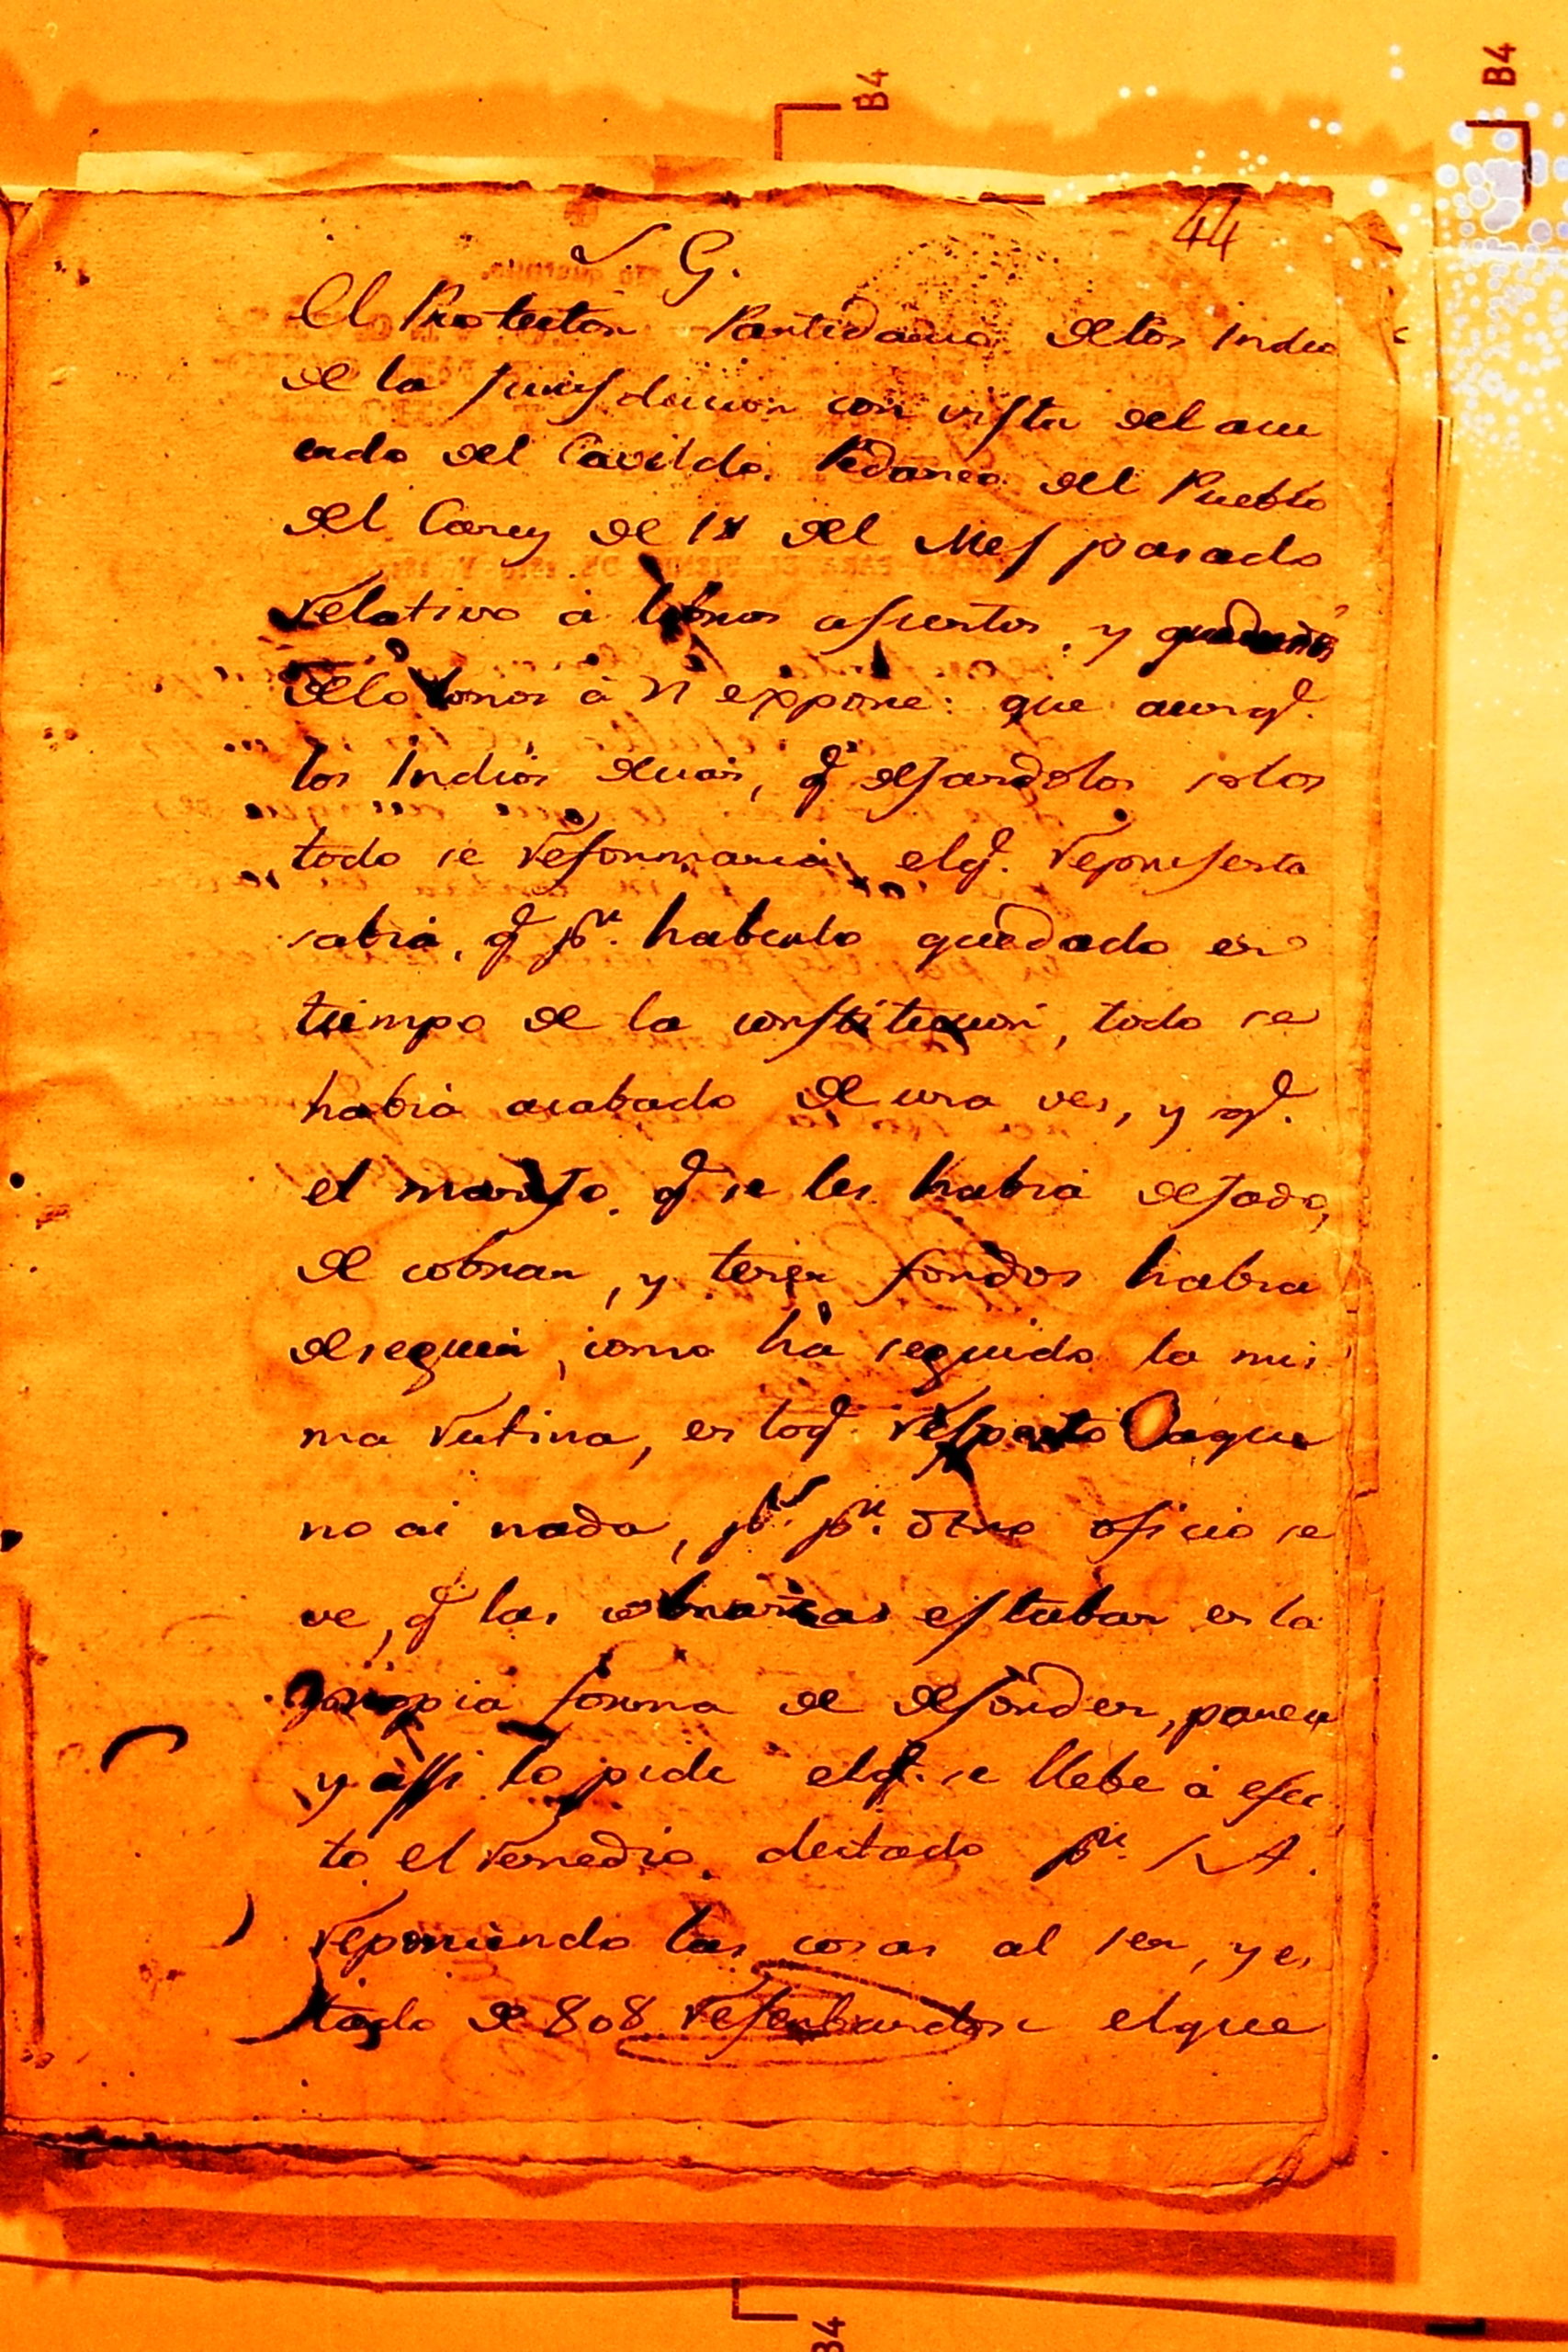 B4
B4
44
S G.
El Protector Partidario delos Indio
de la Jurisdiccion con vista del acu
erdo del Cavildo Pedaneo del Pueblo
del Caney de 18 del Mes pasado
relativo à asuntos, y
à N expone: que aunqe.
los Indios decian, qe dejandolos solos
todo se reformaria, elqe. representa
sabia, qe pr. haberlo quedado en
tiempo de la constitucion, todo se
habia acabado de una ves, y qe.
el manejo qe se les habia dejado,
de cobrar, y tener fondos habia
deseguir, como hà seguido la mis
ma rutina, en loqe. respecto aque
no ai nada, ps. pr. otro oficio se
ve, qe las cobranzas estaban en la
propia forma de desorden, parece
y assi lo pide elqe. se llebe à efec
to el remedio dictado pr. S A.
reponiendo las cosas al ser, y es
tado de 808 elque
B4